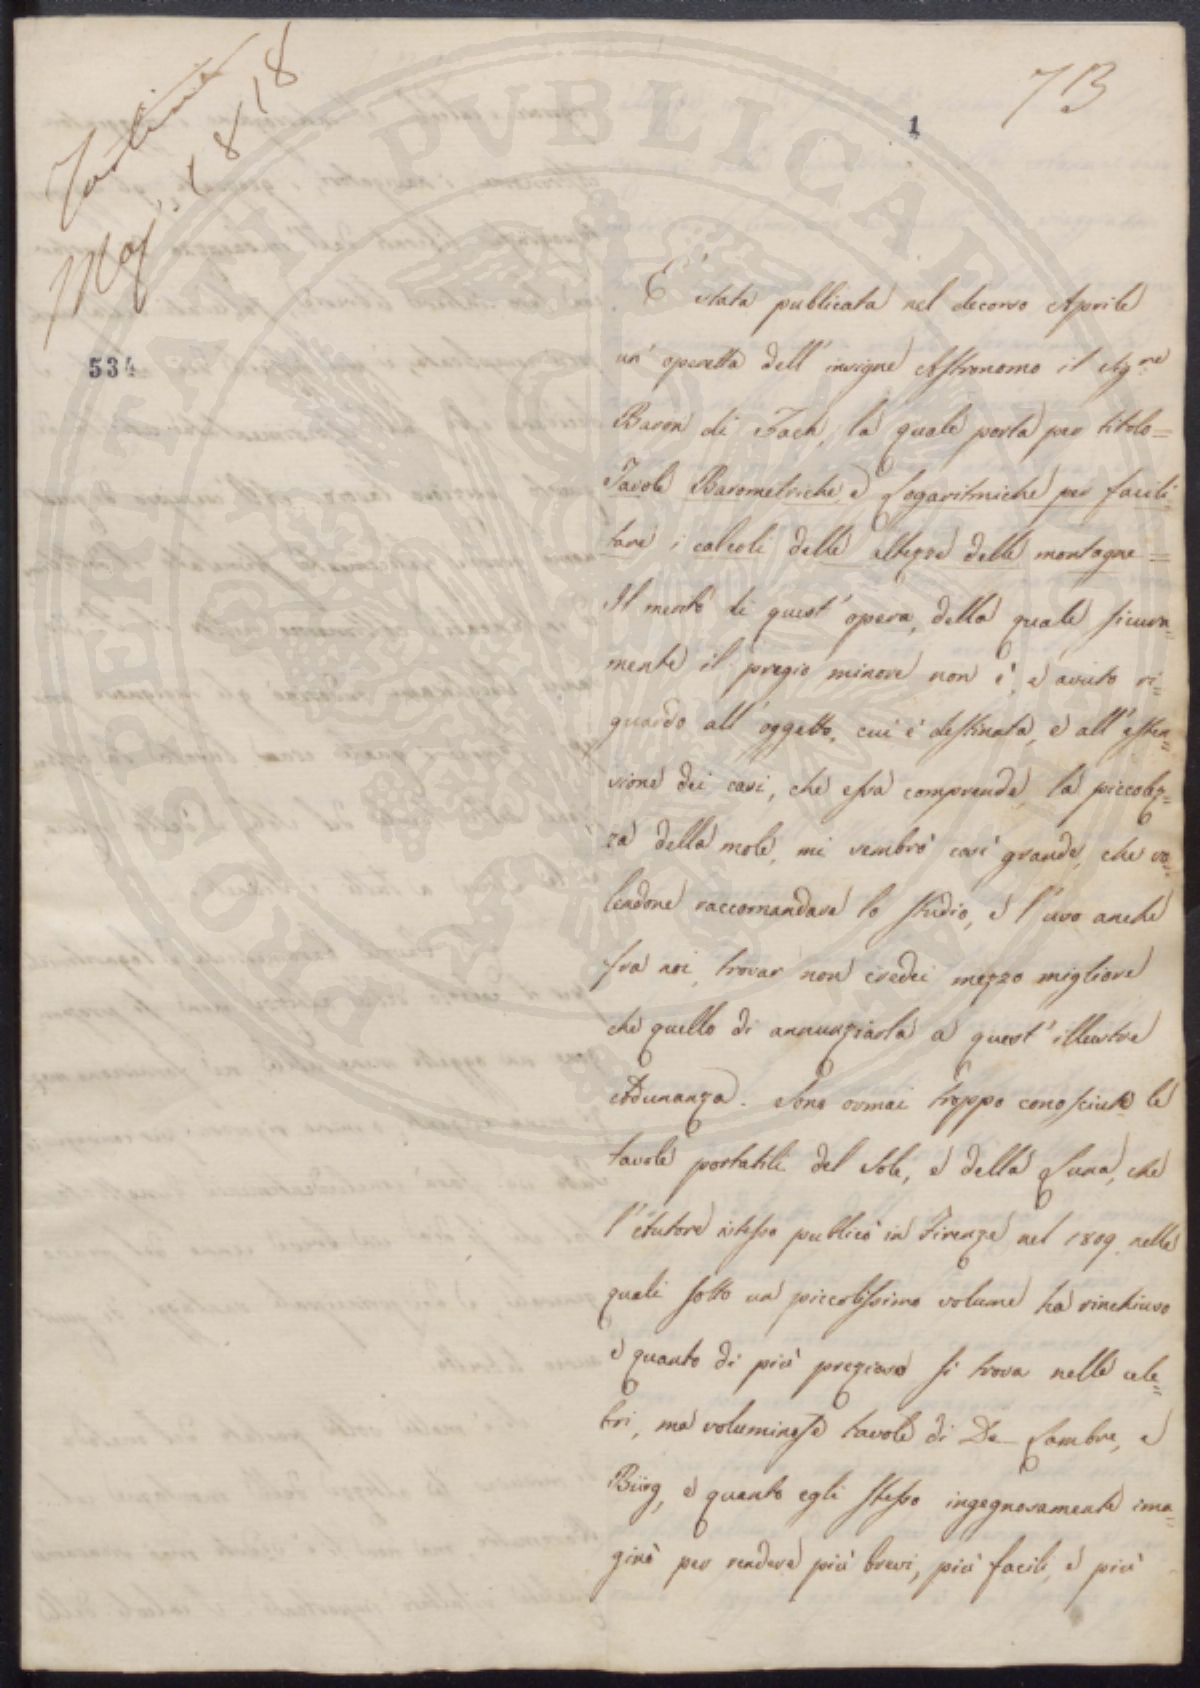 Mag. 1818
73
1
534
E' stata publicata nel decorso Aprile
un' operetta dell' insigne Astronomo il Sig.re
Baron di Zach, la quale porta per titolo=
Tavole Barometriche, e Logaritmiche per facili
tare i calcoli delle altezze delle montagne=
Il merito di quest' opera, della quale sicura=
mente il pregio minore non è, e avuto ri=
guardo all' oggetto, cui è destinata, e all' esten=
sione dei casi, che essa comprende, la piccolez=
za della mole, mi sembrò così grande, che vo=
lendone raccomandare lo studio, e l' uso anche
fra noi, trovar non credei mezzo migliore
che quello di annunziarla a quest' illustre
Adunanza. Sono ormai troppo conosciute le
tavole portatili del Sole, e della Luna, che
l' Autore istesso publicò in Firenze nel 1809. nelle
quali sotto un piccolissimo volume ha rinchiuso
e quanto di più prezioso si trova nelle cele=
bri, ma voluminose tavole di De Lambre, e
Bürg, e quanto egli stesso ingegnosamente ima=
ginò per rendere più brevi, più facili, e più
PROPERTATI PVBLICAE